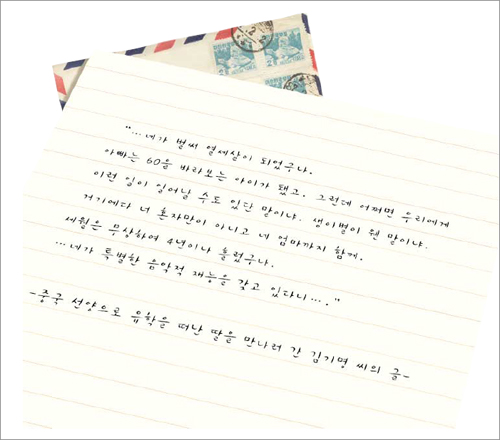 "...네가 벌써 열세살이 되었구나.
아빠는 60을 바라보는 아이가 됐고. 그런데 어쩌면 우리에게
이런 일이 일어날 수도 있단 말이냐. 생이별이 웬 말이냐.
거기에다 너 혼자만이 아니고 네 엄마까지 함께.
세월은 무상하여 4년이나 흘렀구나.
...네가 특별한 음악적 재능을 갖고 있다니...."
-중국 선양으로 유학을 떠난 딸을 만나러 간 김기명 씨의 글-